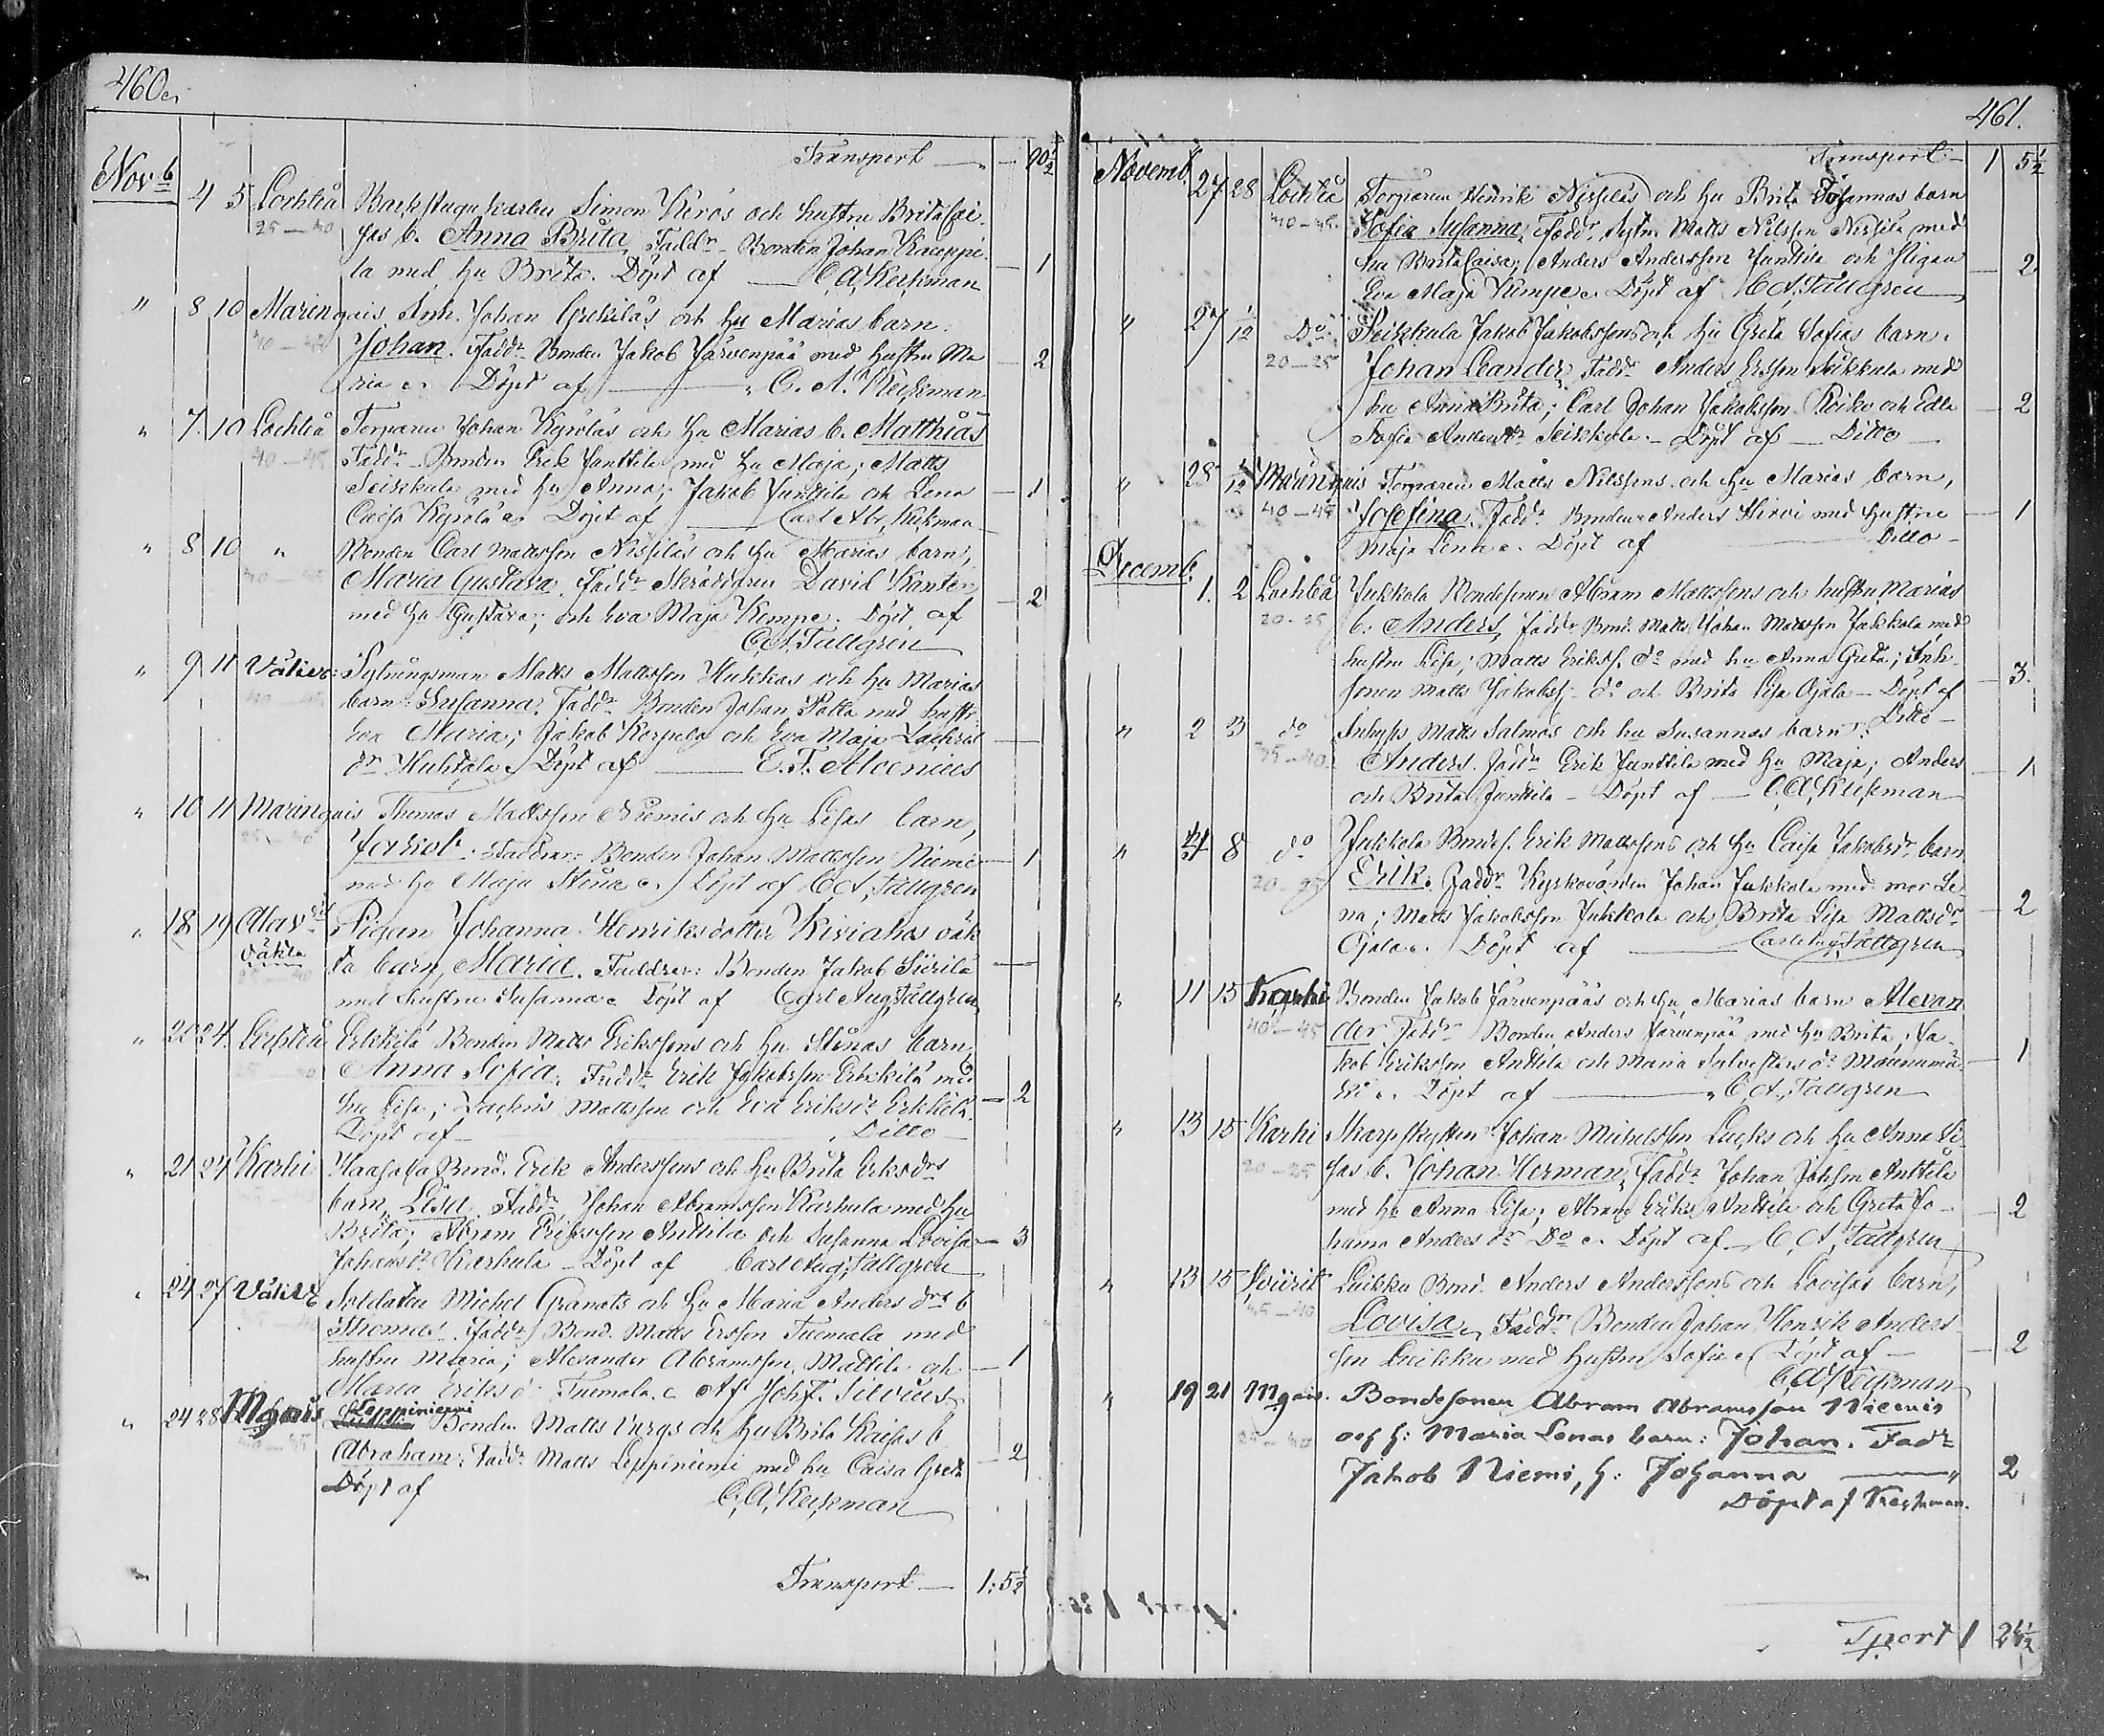 460.
Transport — 20½
Nov.b 4 5 Lochteå Backstugukarlen Simon Kirös och hustru Brita Cai-
25–30 sas b. Anna Brita, Faddr Bonden Johan Kauppi-
la med hu Brita. Döpt af — C. A. Keckman — 1
" 8 10 Maringais Inh. Johan Erkiläs och hu Marias barn
40–45 Johan. Faddr Bonden Jakob Järvenpää med hustru Ma
ria. Döpt af — C. A. Keckman — 2
" 7 10 Lochteå Torparen Johan Kyröläs och hu Marias b. Matthias
40–45 Faddr Bonden Erik Junttila med hu Maja; Matts
Seikkula med hu Anna; Jakob Junttila och Lena
Caisa Kyrölä. Döpt af — Carl Abr. Keckman — 1
" 8 10 " Bonden Carl Mattsson Nissiläs och hu Marias barn,
Maria Gustava. Faddr Skräddaren David Kanten
med hu Gustava; och Eva Maja Kempe. Döpt af — 2
C. A. Tallgren
" 9 11 Sytningsman Matts Mattsson Hukkas och hu Marias
barn Susanna. Faddr Bonden Johan Patta med hustr
Eva Maria; Jakob Korpela och Eva Maja Zachris
dr Huhtala. Döpt af — E. F. Alcenius —
" 10 11 Maringais Thomas Mattsson Niemis och hu Lisas barn,
Jakob. Faddrar: Bonden Johan Mattsson Niemi — 1
med hu Maja Stina. Döpt af C. A. Tallgren
" 18 19 Pigan Johanna Henriksdotter Kiviahos oäk
oäkta ta barn, Maria. Faddrar: Bonden Jakob Siirilä —
med hustru Susanna. Döpt af Carl Aug. Tallgren
" 20 24 Lochteå Erkkilä Bonden Matts Erikssons och hu Stinas barn
Anna Sofia. Faddr Erik Jakobsson Erkkilä med
hu Lisa; Zachris Mattsson och Eva Eriksdr Erkkilä. — 2
Döpt af — Ditto —
" 21 24 Karhi Haapala Bond. Erik Anderssons och hu Brita Eriksdrs
barn, Lisa. Faddr Johan Abramsson Karhula med hu
Brita; Abram Eriksson Anttila och Susanna Lovisa — 3
Johansdr Karhula — Döpt af Carl Aug. Tallgren
" 24 27 Soldaten Michel Granats och hu Maria Anders drs b
Thomas. Faddr Bond. Matts Ersson Tuomala med
hustru Maria; Alexander Abramsson Mattila och — 1
Maria Eriks dr Tuomala. Af Joh. F. Silvius
" 24 28 Mgais Leppiniemi Bonden Matts Vargs och hu Brita Kaisas b
Abraham: Faddr Matts Leppiniemi med hu Caisa Greta — 2
Döpt af C. A. Keckman
Transport — 1: 5½
461.
Transport — 1 5½
Novemb. 27 28 Lochteå Torparen Henrik Nissiläs och hu Brita Johannas barn
40–45 Sofia Susanna, Faddr Sytn. Matts Nilsson Nissilä med
hu Brita Caisa; Anders Andersson Junttila och Pigan — 2
Eva Maja Kempe. Döpt af C. A. Tallgren
" 27 1/12 Do Seikkula Jakob Jakobssons och hu Greta Sofias barn.
20–25 Johan Leander, Faddr Anders Ersson Seikkula med
hu Anna Brita; Carl Johan Jakobsson och Edla — 2
Sofia Andersdr Seikkula — Döpt af — Ditto —
" 28 1/12 Maringais Torparen Matts Nilssons och hu Marias barn,
40–45 Josefina. Faddr Bonden Anders Hirvi med hustru — 1
Maja Lena. Döpt af Ditto —
Decemb. 1. 2 Lochteå Jukkola Bondesonen Abram Mattssons och hustru Marias
20–25 b. Anders, Faddr Bond. Matts Johan Mattsson Jukkola med
hustru Lisa; Matts Erikss. do med hu Anna Greta; Inh.
sonen Matts Jakobss. do och Brita Lisa Ojala — Döpt af — 3.
Ditto —
" 2 3 do Inhyss Matts Salmos och hu Susannas barn
35–40 Anders. Faddr Erik Junttila med hu Maja; Anders
och Brita Junttila — Döpt af — C. A. Keckman — 1
" 8 do Jukkola Bondes. Erik Mattssons och hu Caisa Jakobsdrs barn
20–25 Erik. Faddr Kyrkovärden Johan Jukkola med mor Le-
na; Matts Jakobsson Jukkola och Brita Lisa Mattsdr — 2
Ojala. Döpt af — Carl Aug. Tallgren
" 11 15 Karhi Bonden Jakob Järvenpääs och hu Marias barn Alexan
40–45 der. Faddr Bonden Anders Järvenpää med hu Brita; Ja-
kob Eriksson Anttila och Maria Sylvesters dr Maunumä — 1
ki. Döpt af — C. A. Tallgren
" 13 15 Karhi Skarpskytten Johan Michelsson Lucks och hu Anna Li
20–25 sas b. Johan Herman, Faddr Johan Johsson Anttila
med hu Anna Lisa; Abram Eriks. Anttila och Greta Jo-
hanna Anders dr Do. Döpt af C. A. Tallgren — 2
" 13 15 Leikku Bond. Anders Anderssons och Lovisas barn,
Lovisa, Faddr Bonden Johan Henrik Anders
son Leikku med hustru Sofia. Döpt af — 2
C. A. Keckman
" 19 21 Mgais. Bondesonen Abram Abramsson Niemis
och h: Maria Lenas barn: Johan. Fadr
Jakob Niemi, h: Johanna — 2
Döpt af Keckman.
Tport 1